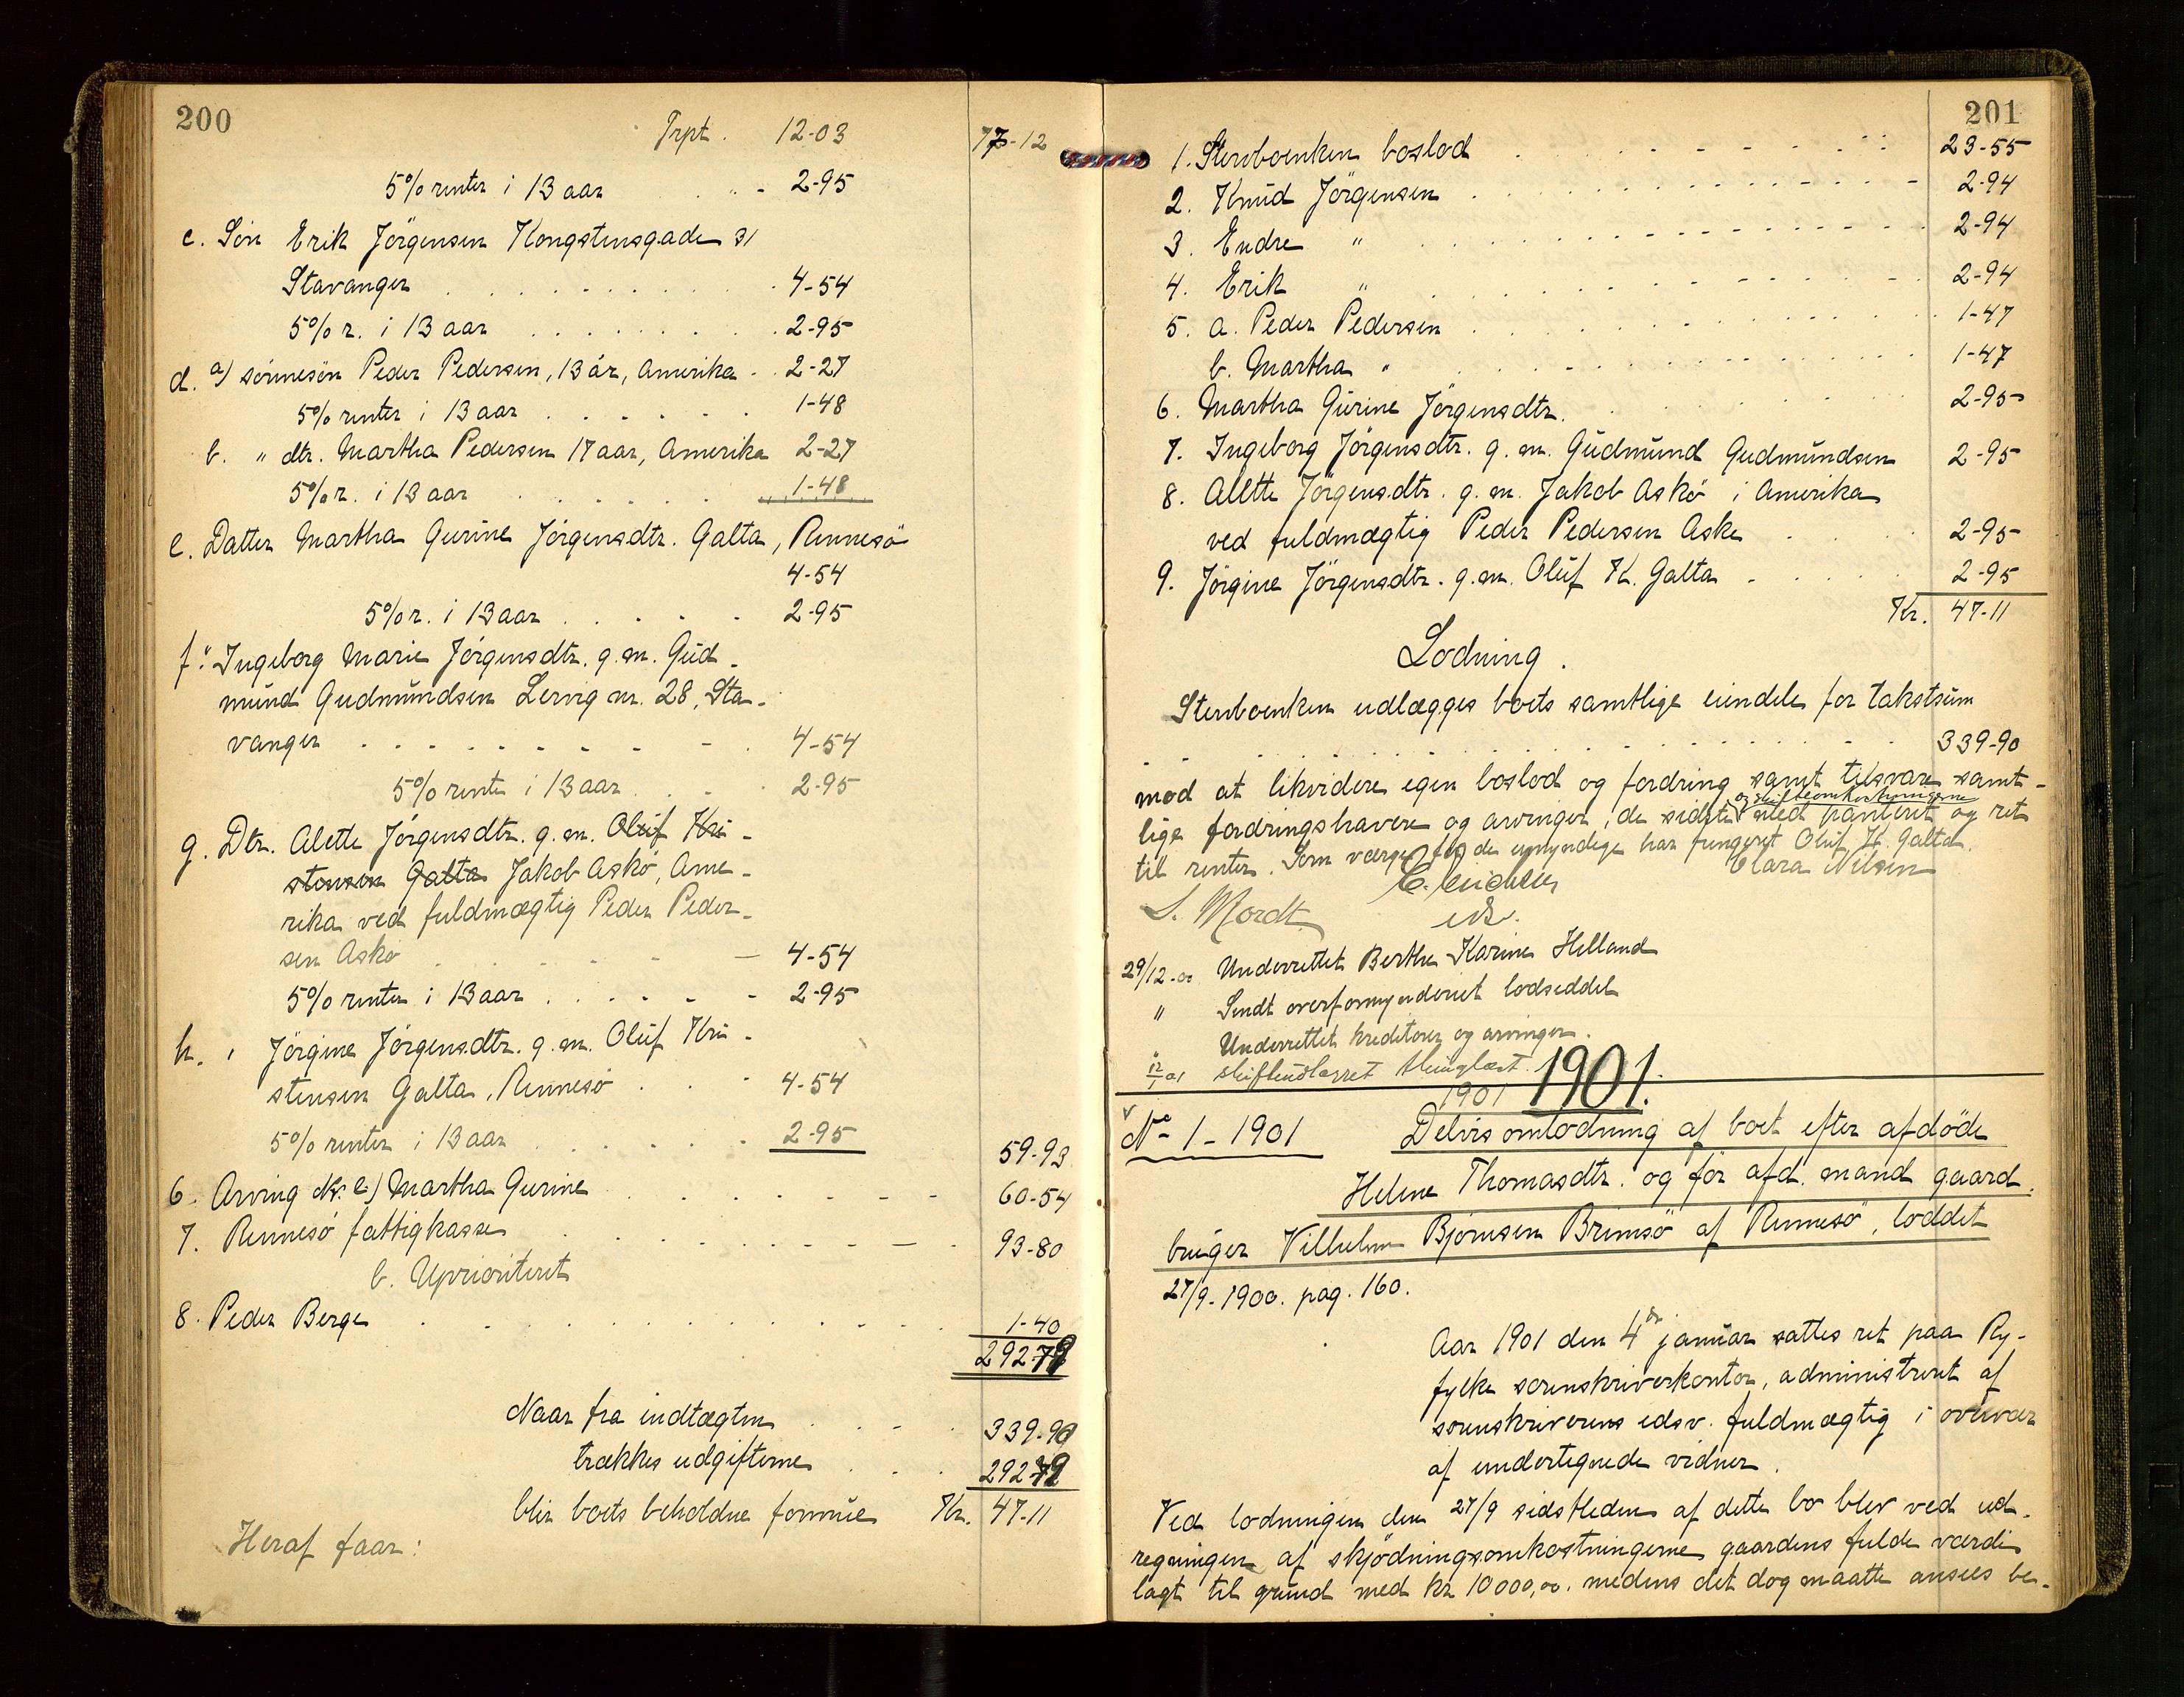 200
Trpt. 12-03 77-12
5% renter i 13 aar . . - 2-95
c. Søn Erik Jörgensen Kongstensgade 31
Stavanger . . . . . . . . . 4-54
5% r. i 13 aar . . . . . . . 2-95
d. a) sønnesøn Peder Pedersen, 13 år, Amerika . . 2-27
5% renter i 13 aar . . . . . . 1-48
b. " dtr. Martha Pedersen 17 aar, Amerika 2-27
5% r. i 13 aar . . . . . 1-48
e. Datter Martha Gurine Jörgensdtr. Galta, Rennesö
4-54
5% r. i 13 aar . . . . . 2-95
f. " Ingeborg Marie Jörgensdtr. g. m. Gud-
mund Gudmundsen Lervig nr. 28, Sta-
vanger . . . . . . . . . 4-54
5% rente i 13 aar . . . . 2-95
g. Dtr. Alette Jörgensdtr. g. m. Oluf Kri-
stensen Galta Jakob Askö, Ame-
rika ved fuldmægtig Peder Peder-
sen Askö . . . . . . . 4-54
5% renter i 13 aar . . . . . 2-95
h. " Jörgine Jörgensdtr. g. m. Oluf Kri-
stensen Galta, Rennesö . . . 4-54
5% renter i 13 aar . . . . . 2-95 59-93
6. Arving No: e) Martha Gurine . . . . . . . 60-54
7. Rennesö fattigkasse . . . . . . . . 93-80
b. Uprioriteret
8. Peder Berge . . . . . . . . . . . . 1-40
292-79
Naar fra indtægten . . . . 339-90
trækkes udgifterne . . . 292-79
blir boets beholdne formue Kr. 47-11
Heraf faar:
201
1. Stervboenken boslod . . . . . . . . 23-55
2. Knud Jörgensen . . . . . . . . . . 2-94
3. Endre " . . . . . . . . . . . 2-94
4. Erik " . . . . . . . . . . 2-94
5. a. Peder Pedersen . . . . . . . . . 1-47
b. Martha " . . . . . . . . . 1-47
6. Martha Gurine Jörgensdtr. . . . . . . 2-95
7. Ingeborg Jörgensdtr. g. m. Gudmund Gudmundsen 2-95
8. Alette Jörgensdtr. g. m. Jakob Askö i Amerika
ved fuldmægtig Peder Pedersen Aske . . . . 2-95
9. Jörgine Jörgensdtr. g. m. Oluf K. Galta . . . . . 2-95
Kr. 47-11
Lodning.
Stervboenken udlægges boets samtlige eiendele for takstsum
. . . . . . . . . . . . . . 339-90
mod at likvidere egen boslod og fordring samt tilsvare samt-
lige fordringshavere og arvinger, de sidste med panteret og ret
og skifteomkostningerne
til renter. Som værge for de umyndige har fungeret Oluf K. Galta.
Clara Nilsen
S. Mordt
edsv.
29/12-00 Underrettet Berthe Karine Helland
" Sendt overformynderiet lodseddel
" Underrettet kreditorer og arvinger.
12/1 01 skifteudlægget thinglæst.
1901 1901.
No 1 - 1901 Delvis omlodning af boet efter afdöde
Helene Thomasdtr. og för afd. mand gaard-
bruger Vilhelm Bjørnsen Brimsö af Rennesö, loddet
27/9-1900. pag. 160.
Aar 1901 den 4de januar sattes ret paa Ry-
fylke sorenskriverkontor, administreret af
sorenskriverens edsv. fuldmægtig i overvær
af undertegnede vidner.
Ved lodningen den 27/9 sidstleden af dette bo blev ved ud-
regningen af skjödningsomkostningerne gaardens fulde værdi
lagt til grund med kr 10000,00. medens det dog maatte ansees be-